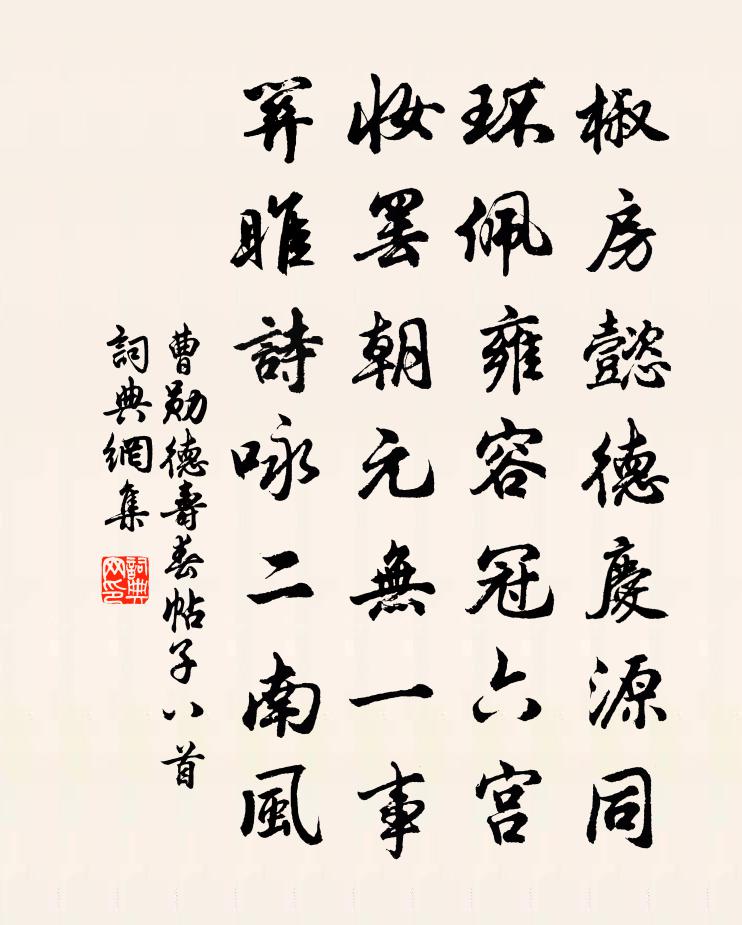 椒房懿德慶源同
环佩雍容冠六宫
妆罷朝元無一事
關雎詩咏二南風
曹勛德壽春帖子八首
詞典網集
詞典网印